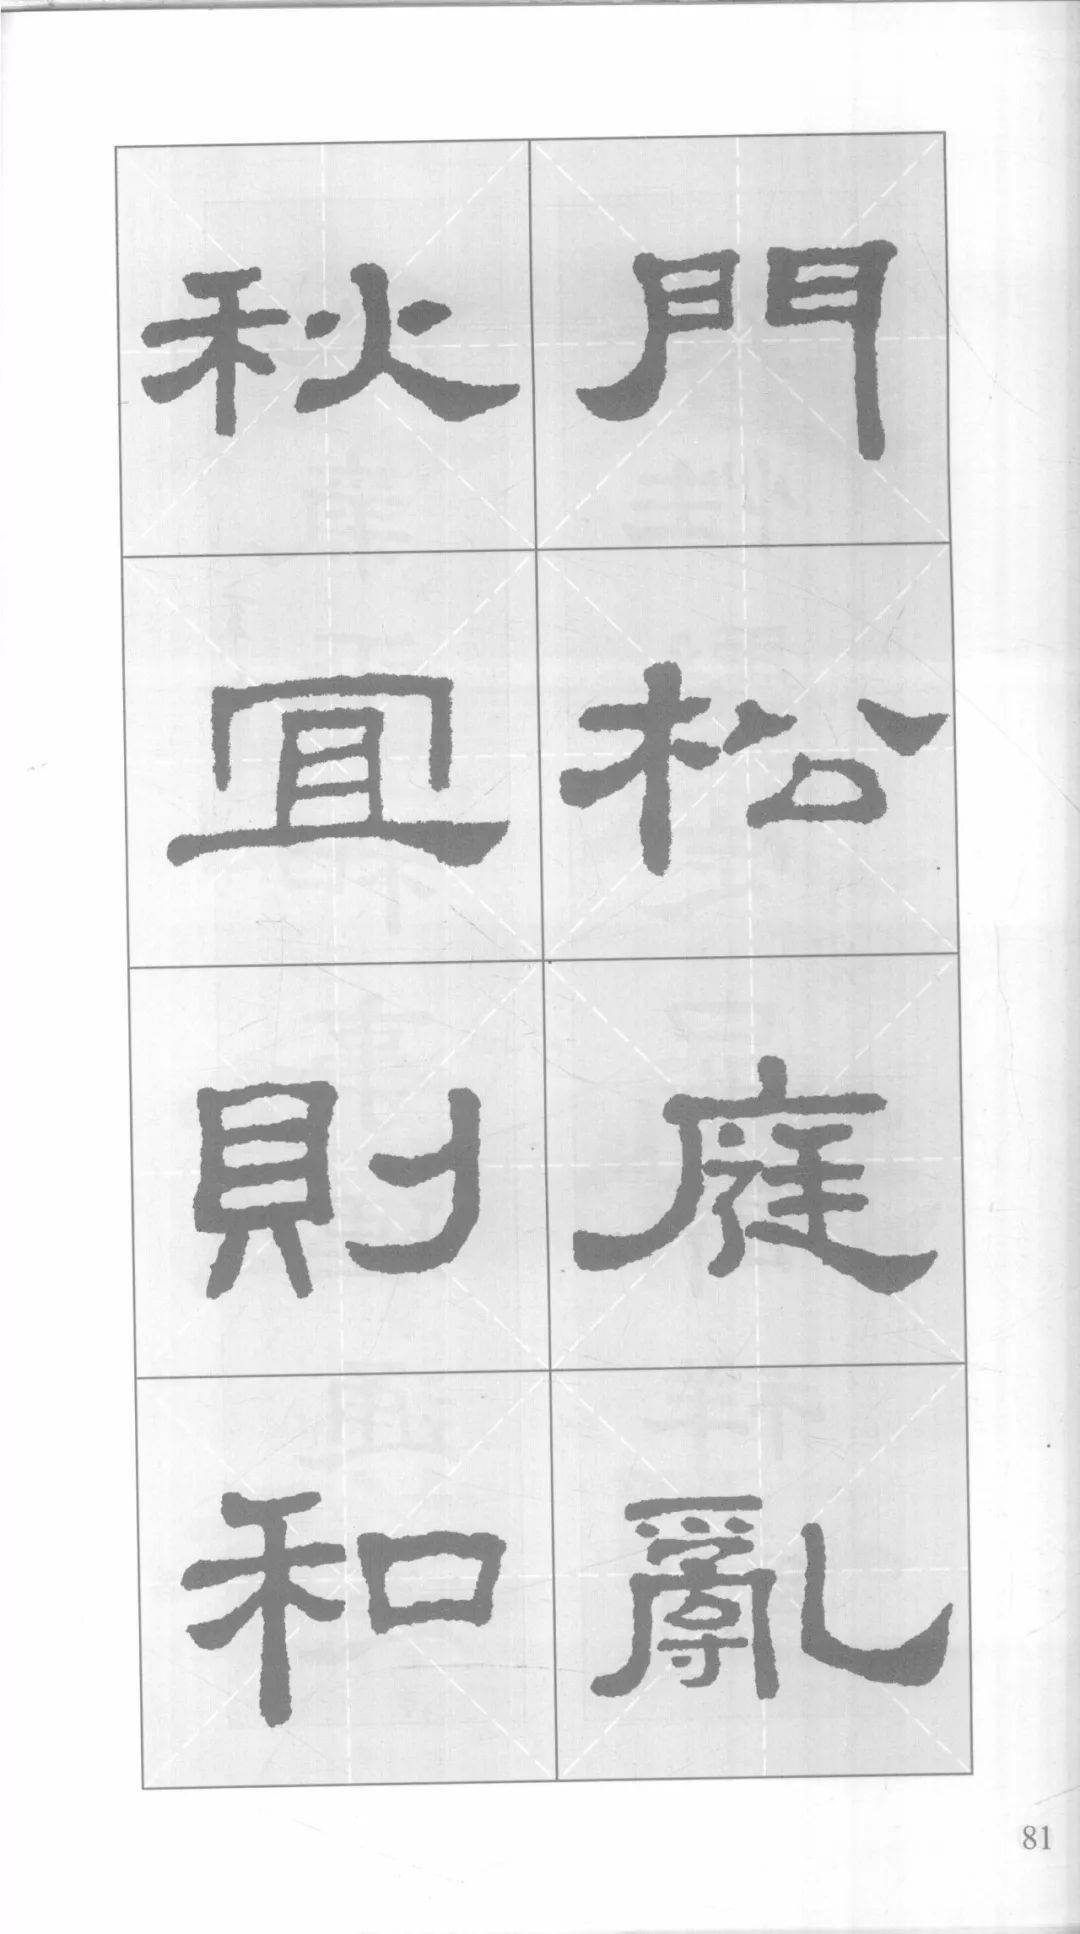 門松庭亂
秋宜則和
81